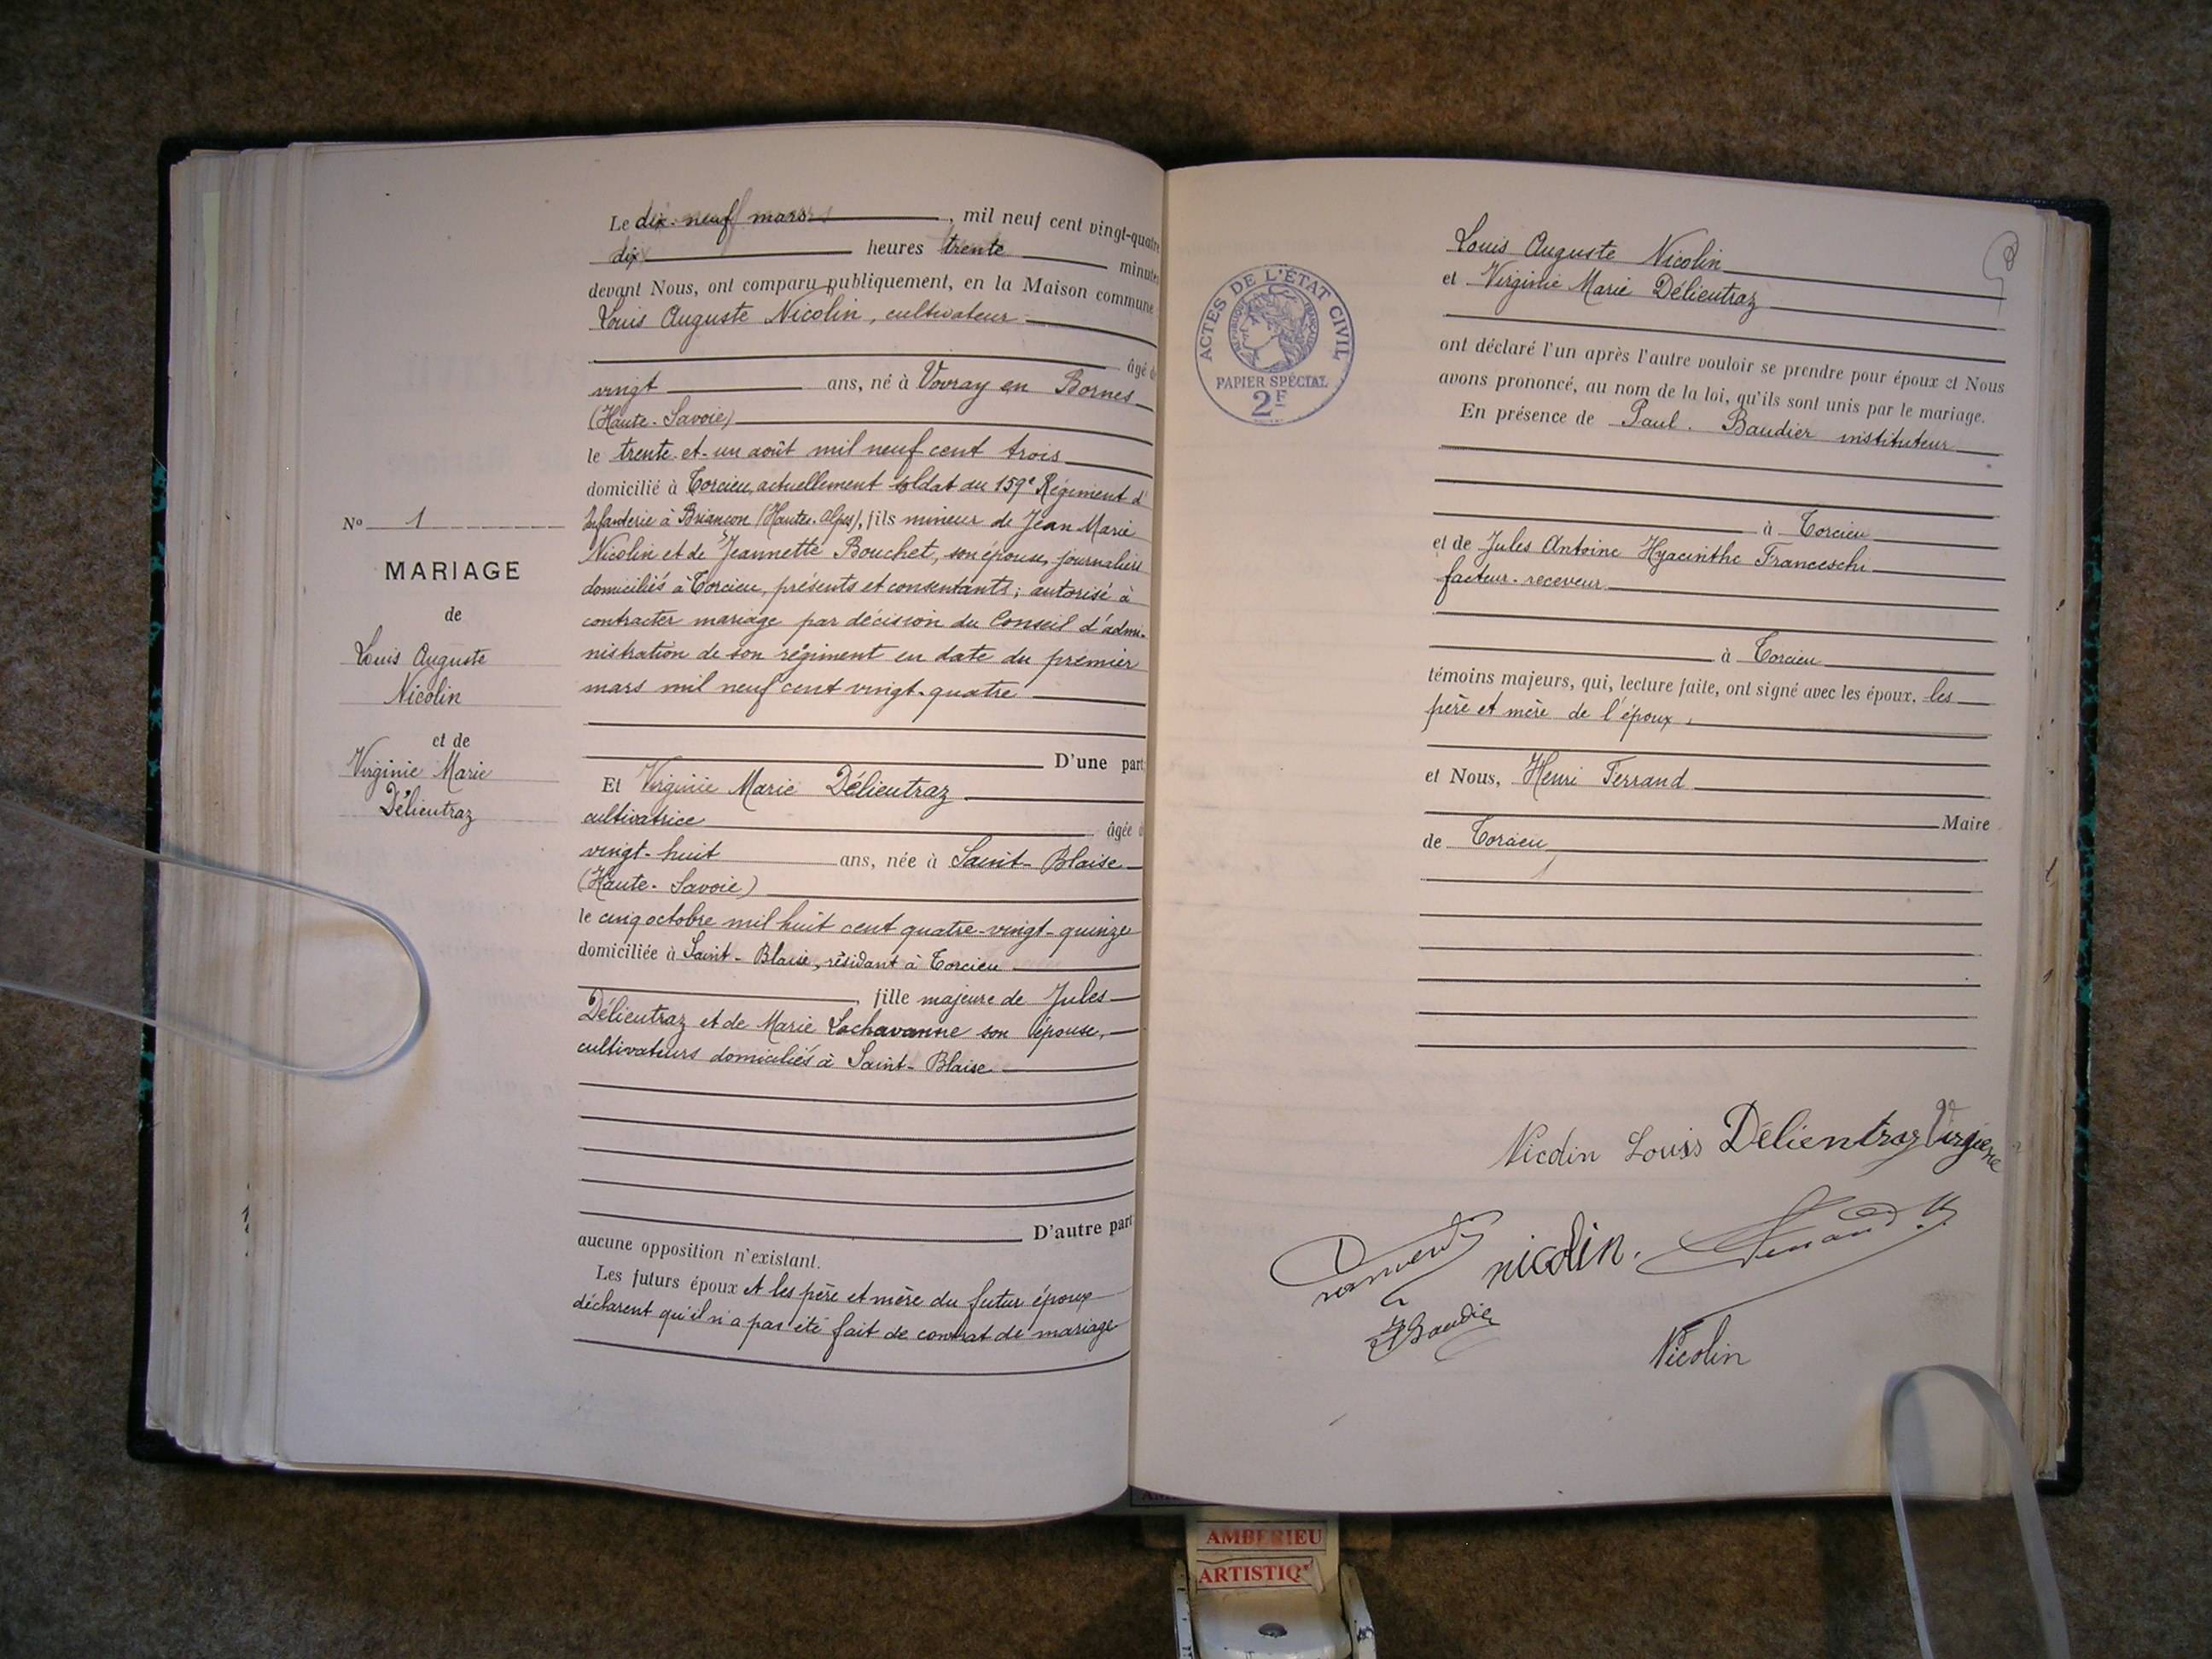 Le dix-neuf mars, mil neuf cent vingt-quatre
dix heures trente minutes
devant Nous, ont comparu publiquement, en la Maison commune
Louis Auguste Nicolin, cultivateur
âgé de
vingt ans, né à Vovray en Bornes
(Haute-Savoie)
le trente-et-un août mil neuf cent trois
domicilié à Torcieu, actuellement soldat au 159e Régiment d'
Infanterie à Briançon (Hautes-Alpes), fils mineur de Jean Marie
Nicolin et de Jeannette Bouchet, son épouse, journaliers
domiciliés à Torcieu, présents et consentants; autorisé à
contracter mariage par décision du Conseil d'admi-
nistration de son régiment en date du premier
mars mil neuf cent vingt-quatre
D'une part
Et Virginie Marie Délieutraz
cultivatrice âgée de
vingt-huit ans, née à Saint-Blaise
(Haute-Savoie)
le cinq octobre mil huit cent quatre-vingt-quinze
domiciliée à Saint-Blaise, résidant à Torcieu
, fille majeure de Jules
Délieutraz et de Marie Lachavanne son épouse,
cultivateurs domiciliés à Saint-Blaise
D'autre part
aucune opposition n'existant.
Les futurs époux et les père et mère du futur époux
déclarent qu'il n'a pas été fait de contrat de mariage
No 1
MARIAGE
de
Louis Auguste
Nicolin
et de
Virginie Marie
Délieutraz
ACTES DE L'ÉTAT CIVIL
RÉPUBLIQUE FRANÇAISE
PAPIER SPÉCIAL
2F
Louis Auguste Nicolin
et Virginie Marie Délieutraz
ont déclaré l'un après l'autre vouloir se prendre pour époux et Nous
avons prononcé, au nom de la loi, qu'ils sont unis par le mariage.
En présence de Paul Baudier instituteur
à Torcieu
et de Jules Antoine Hyacinthe Franceschi
facteur-receveur
à Torcieu
témoins majeurs, qui, lecture faite, ont signé avec les époux, les
père et mère de l'époux,
et Nous, Henri Ferrand
Maire
de Torcieu
Nicolin Louis Délientraz Virginie
nicolin.
Ferrand H.
P Baudier
Nicolin
AMBERIEU
ARTISTIQ